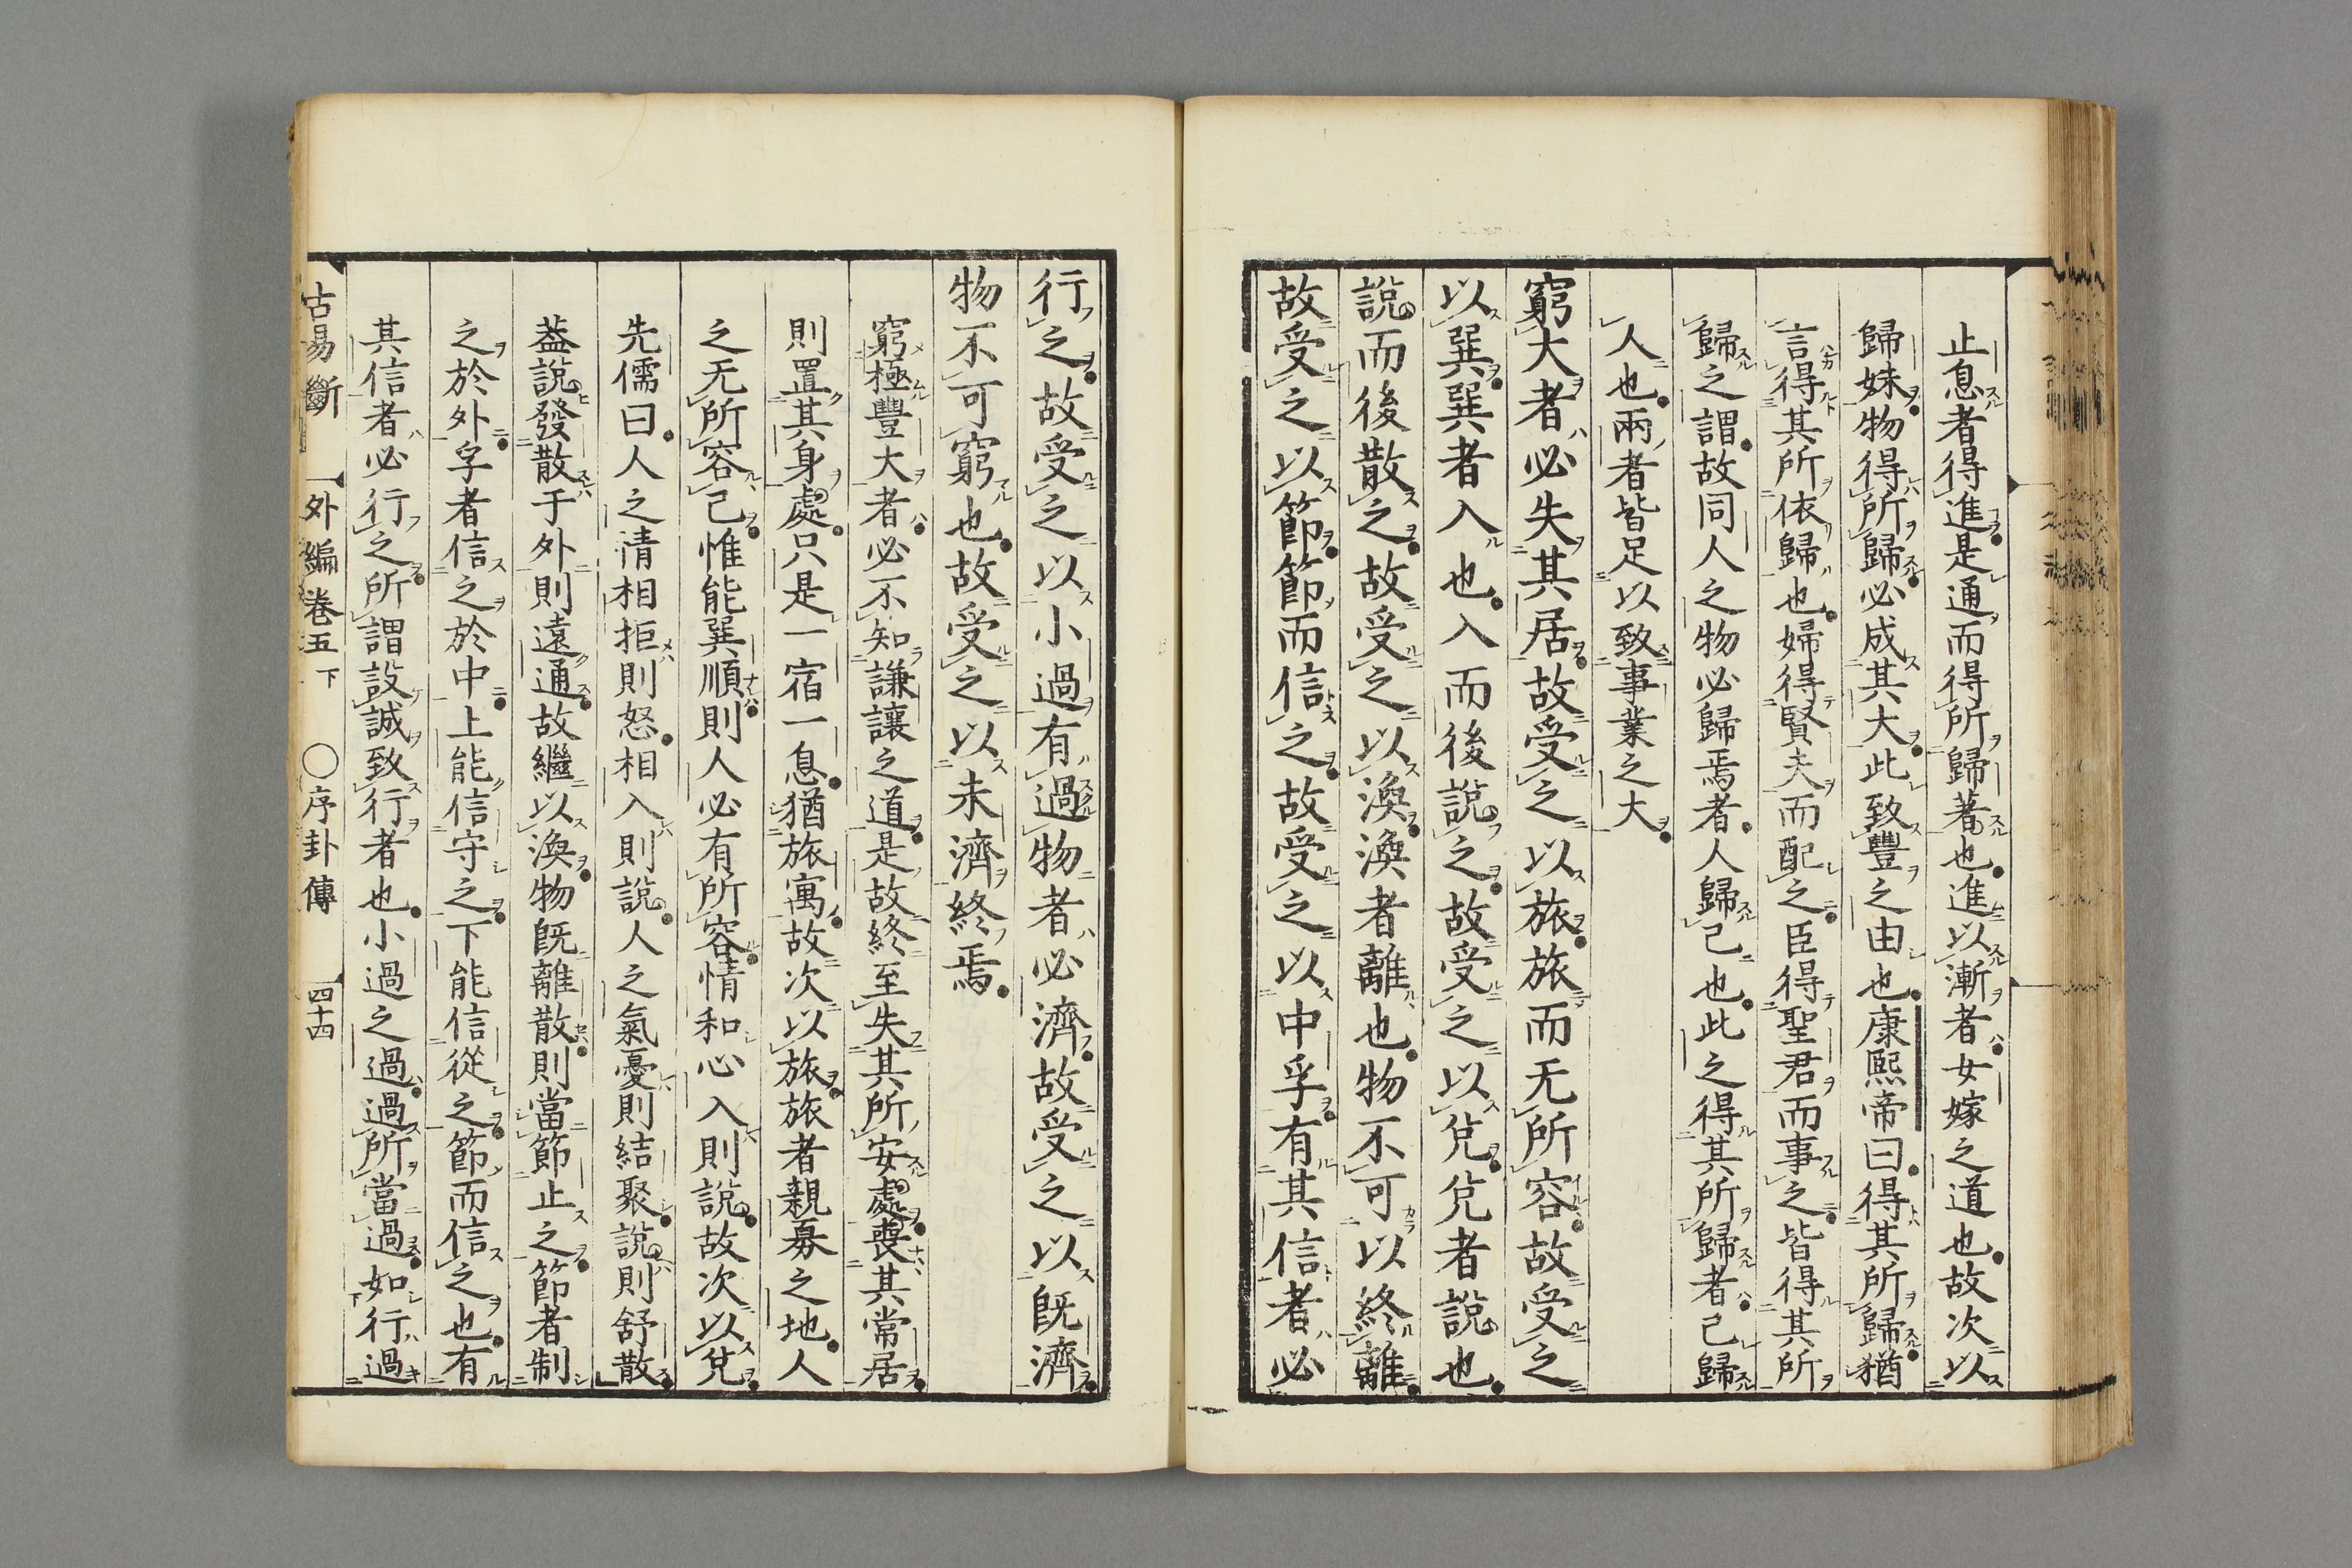 止息者得進是通而得所歸著也進以漸者女嫁之道也故次以
歸妹物得所歸必成其大此致豐之由也康熙帝曰得其所歸猶
言得其所依歸也婦得賢夫而配之臣得聖君而事之皆得其所
歸之謂故同人之物必歸焉者人歸己也此之得其所歸者己歸
人也兩者皆足以致事業之大
窮大者必失其居故受之以旅旅而无所容故受之
以巽巽者入也入而後說之故受之以兌兌者說也
說而後散之故受之以渙渙者離也物不可以終離
故受之以節節而信之故受之以中孚有其信者必
行之故受之以小過有過物者必濟故受之以既濟
物不可窮也故受之以未濟終焉
窮極豐大者必不知謙讓之道是故終至失其所安處喪其常居
則置其身處只是一宿一息猶旅寓故次以旅旅者親寡之地人
之无所容己惟能巽順則人必有所容情和心入則說故次以兌
先儒曰人之情相拒則怒相入則說人之氣憂則結聚說則舒散
葢說發散于外則遠通故繼以渙物既離散則當節止之節者制
之於外孚者信之於中上能信守之下能信從之節而信之也有
其信者必行之所謂設誠致行者也小過之過過所當過如行過
古易斷 外編卷五下 〇序卦傳 四十四